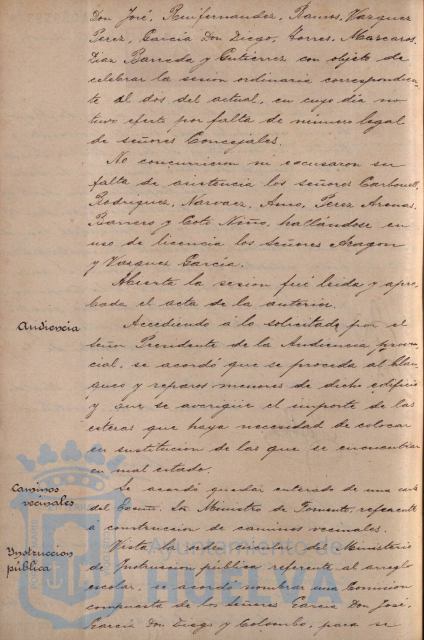 Don José, Ruifernandez, Ramos, Vazquez
Perez, Garcia Don Diego, Torres, Mascaros
Diaz Barreda y Gutierrez con objeto de
celebrar la sesion ordinaria correspondien-
te al dos del actual, en cuyo dia no
tuvo efecto por falta de número legal
de señores Concejales.
No concurrieron ni escusaron su
falta de asistencia los señores Carbonell,
Rodriguez, Narvaez, Amo, Perez Arenas,
Barrero y Coto Niño, hallándose en
uso de licencia los señores Aragon
y Vazquez Garcia.
Abierta la sesion fué leida y apro-
bada el acta de la anterior.
Audiencia
Accediendo á lo solicitado por el
señor Presidente de la Audiencia provin-
cial, se acordó que se proceda al blan-
queo y reparos menores de dicho edificio
y que se averigue el importe de las
esteras que haya necesidad de colocar
en sustitucion de las que se encuentran
en mal estado.
Caminos
vecinales
Se acordó quedar enterado de una carta
del Excmo. Sr. Ministro de Fomento, referente
á construccion de caminos vecinales.
Instruccion
pública
Vista la orden circular del Ministerio
de Instruccion pública referente al arreglo
escolar, se acordó nombrar una Comision
compuesta de los Señores Garcia Don José,
Garcia Don Diego y Colombo, para se
Ayuntamiento de
HUELVA